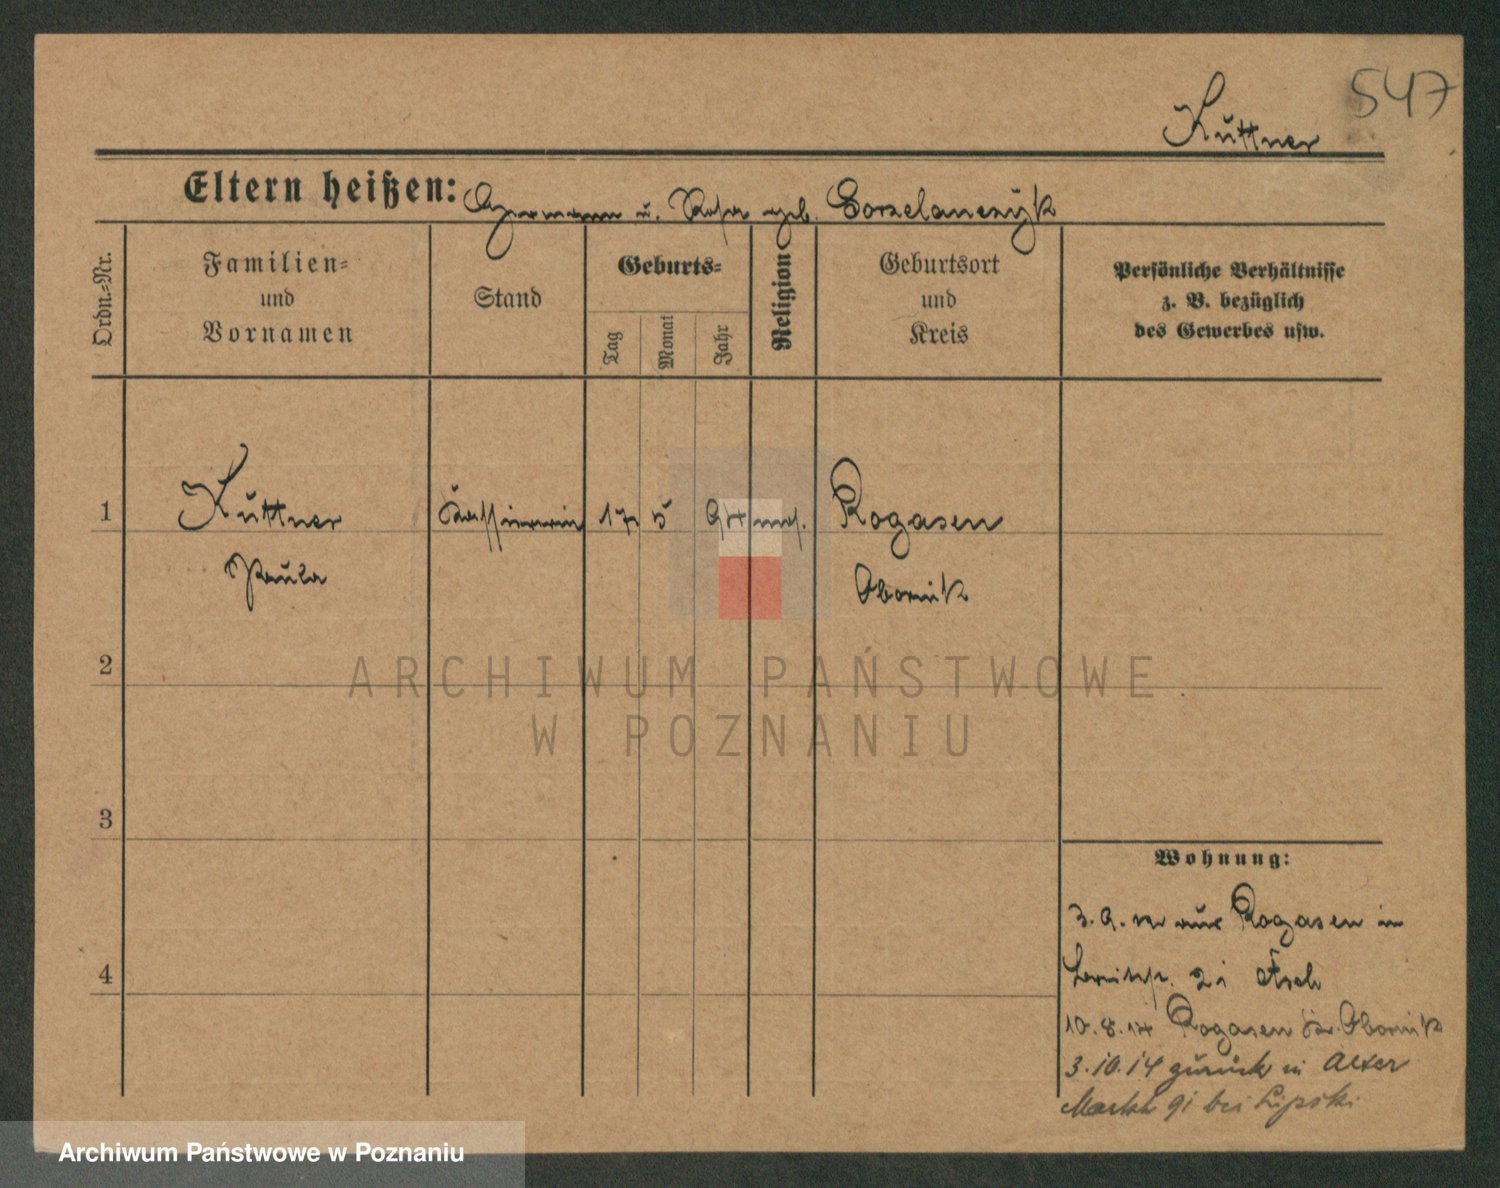 547
Kuttner
Eltern heißen: Hermann u. Rosa geb. Gorzelanczyk
Ordn.-Nr.
Familien-
und
Vornamen
Stand
Geburts-
Tag
Monat
Jahr
Religion
Geburtsort
und
Kreis
Persönliche Verhältnisse
z. B. bezüglich
des Gewerbes usw.
1
Kuttner
Paula
Kassiererin
17
5
94
mos.
Rogasen
Obornik
2
3
4
ARCHIWUM PAŃSTWOWE
W POZNANIU
Wohnung:
3. 9. aus Rogasen in
2 i
10.8.14 Rogasen Kr. Obornik
3.10.14 zurück in Alter
Markt 91 bei Lipski
Archiwum Państwowe w Poznaniu